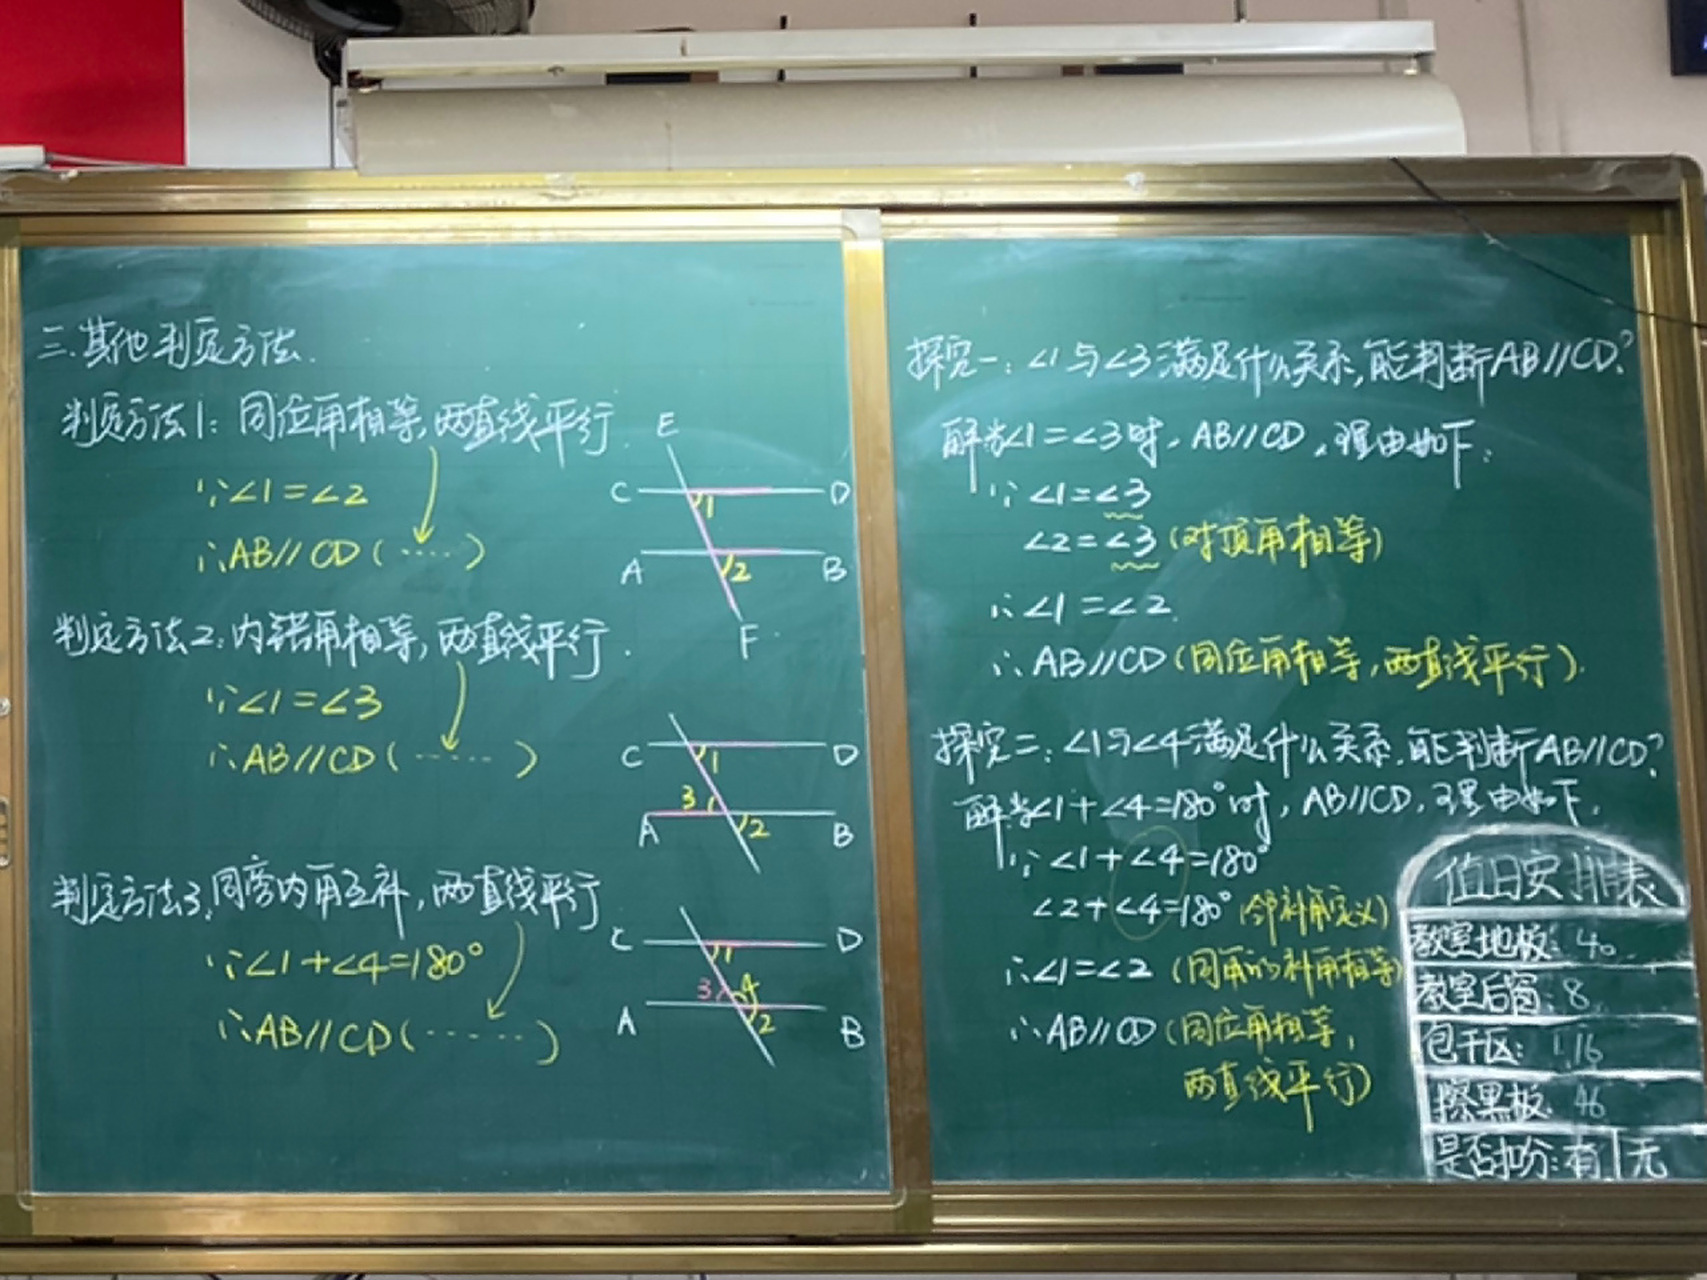 二.其他判定方法.
判定方法1:同位角相等,两直线平行.
∵∠1=∠2
∴AB//CD(·····)
E
C
D
1
A
2
B
F
判定方法2:内错角相等,两直线平行.
∵∠1=∠3
∴AB//CD(······)
C
1
D
3
A
2
B
判定方法3.同旁内角互补,两直线平行
∵∠1+∠4=180°
∴AB//CD(······)
C
1
D
3
4
A
2
B
探究一:∠1与∠3满足什么关系,能判断AB//CD?
解:当∠1=∠3时,AB//CD,理由如下:
∵∠1=∠3
∠2=∠3(对顶角相等)
∴∠1=∠2.
∴AB//CD(同位角相等,两直线平行).
探究二:∠1与∠4满足什么关系,能判断AB//CD?
解:当∠1+∠4=180°时,AB//CD,理由如下.
∵∠1+∠4=180°
∠2+∠4=180°(邻补角定义)
∴∠1=∠2(同角的补角相等)
∴AB//CD(同位角相等,
两直线平行)
值日安排表
教室地板:40
教室后窗:8
包干区:1,16
擦黑板:46
是否扣分:有|无